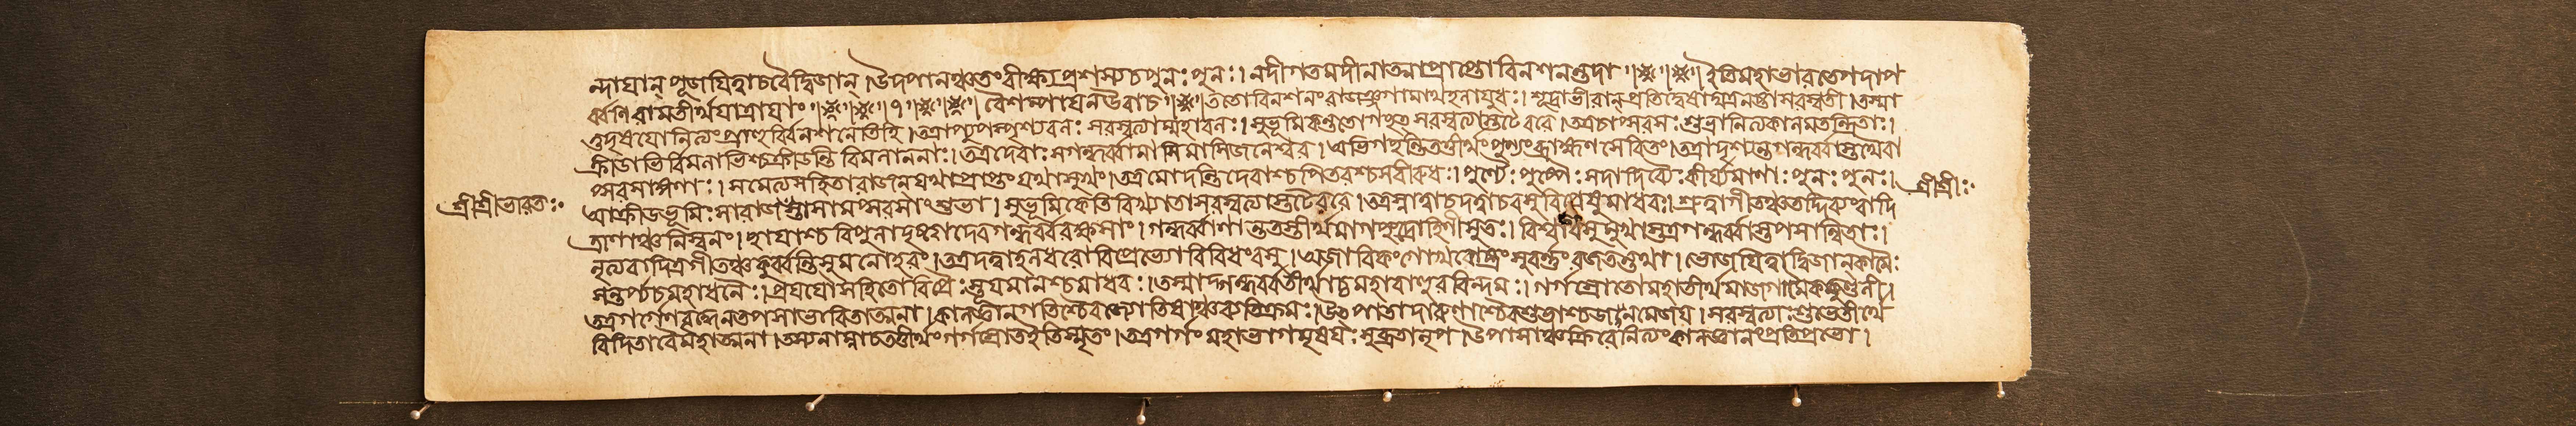 ন্দায়ান্ পূজয়িত্বাচবৈদ্বিজান্ ।উদপানঞ্চতংবীক্ষ্যপ্রশস্যচপুনঃপুনঃ। নদীগতমদীনাত্মাপ্রাপ্তোবিনশনন্তদা ॥ ইতিমহাভারতেগদাপ
র্ব্বণিরামতীর্থযাত্রায়াং॥ ১ ॥ বৈশম্পায়নউবাচ॥ ততোবিনশনংরাজঞ্জগামাথহলায়ুধঃ। শূদ্রাভীরান্প্রতিদ্বেষাদ্যত্রনষ্টাসরস্বতী ।তস্মা
ত্তুদৃষয়োনিত্যংপ্রাহুর্বিনশনেতিহি ।তত্রাপ্যুপস্পৃশ্যবলঃ সরস্বত্যাম্মহাবলঃ। সুভূমিকন্ততোগচ্ছৎ সরস্বত্যাস্তটেবরে ।তত্রচাপ্সরসঃ শুভ্রানিত্যকালমতন্দ্রিতাঃ।
ক্রীডাভির্বিমলাভিশ্চক্রীডন্তি বিমলাননাঃ।তত্রদেবাঃসগন্ধর্ব্বামাসিমাসিজনেশ্বর ।অভিগচ্ছন্তিতত্তীর্থংপুণ্যংব্রাহ্মণসেবিতং।তত্রাদৃশ্যন্তগন্ধর্ব্বাস্তথৈবা
প্সরসাঙ্গণাঃ। সমেত্যসহিতারাজন্যথাপ্রাপ্তংযথাসুখং।তত্রমোদন্তিদেবাশ্চপিতরশ্চসবীরুধঃ। পুণ্যৈঃপুষ্পৈঃসদাদিব্যৈঃকীর্য্যমাণাঃপুনঃপুনঃ।
শ্রীশ্রীভারতঃ
শ্রীশ্রীঃ
আক্রীডভূমিঃসারাজংস্তাসামপ্সরসাংশুভা। সুভূমিকেতিবিখ্যাতাসরস্বত্যাস্তটেবরে।তত্রস্নাত্বাচদত্ত্বাচবসুবিপ্রেষুমাধবঃ।শ্রুত্বাগীতঞ্চতদ্দিব্যংবাদি
ত্রাণাঞ্চনিস্বনং।ছায়াশ্চবিপুলাদৃষ্ট্বাদেবগন্ধর্ব্বরক্ষসাং।গন্ধর্ব্বাণান্ততস্তীর্থমাগচ্ছদ্রোহিণীসুতঃ।বিশ্বাবসুমুখাস্তত্রগন্ধর্ব্বাস্তপসান্বিতাঃ।
নৃত্যবাদিত্রগীতঞ্চকুর্ব্বন্তিসুমনোহরং।তত্রদত্ত্বাহলধরোবিপ্রেভ্যোবিবিধংবসু।অজাবিকংগোখরোষ্ট্রংসুবর্ণংরজতন্তথা।ভোজয়িত্বাদ্বিজান্কামৈঃ
সন্তর্প্যচমহাধনৈঃ।প্রযযৌসহিতোবিপ্রৈঃস্তূয়মানশ্চমাধবঃ।তস্মাদ্গন্ধর্ব্বতীর্থাচ্চমহাবাহুররিন্দমঃ।গর্গস্রোতোমহাতীর্থমাজগামৈককুণ্ডলী।
তত্রগর্গেণবৃদ্ধেনতপসাভাবিতাত্মনা।কালজ্ঞানগতিশ্চৈবজ্যোতিষাঞ্চব্যতিক্রমঃ।উৎপাতাদারুণাশ্চৈবশুভাশ্চজনমেজয়।সরস্বত্যাঃশুভেতীর্থে
বিদিতাবৈমহাত্মনা।তস্যনাম্নাচতত্তীর্থংগর্গস্রোতইতিস্মৃতং।তত্রগর্গংমহাভাগমৃষয়ঃসুব্রতানৃপ।উপাসাঞ্চক্রিরেনিত্যংকালজ্ঞানংপ্রতিপ্রভো।